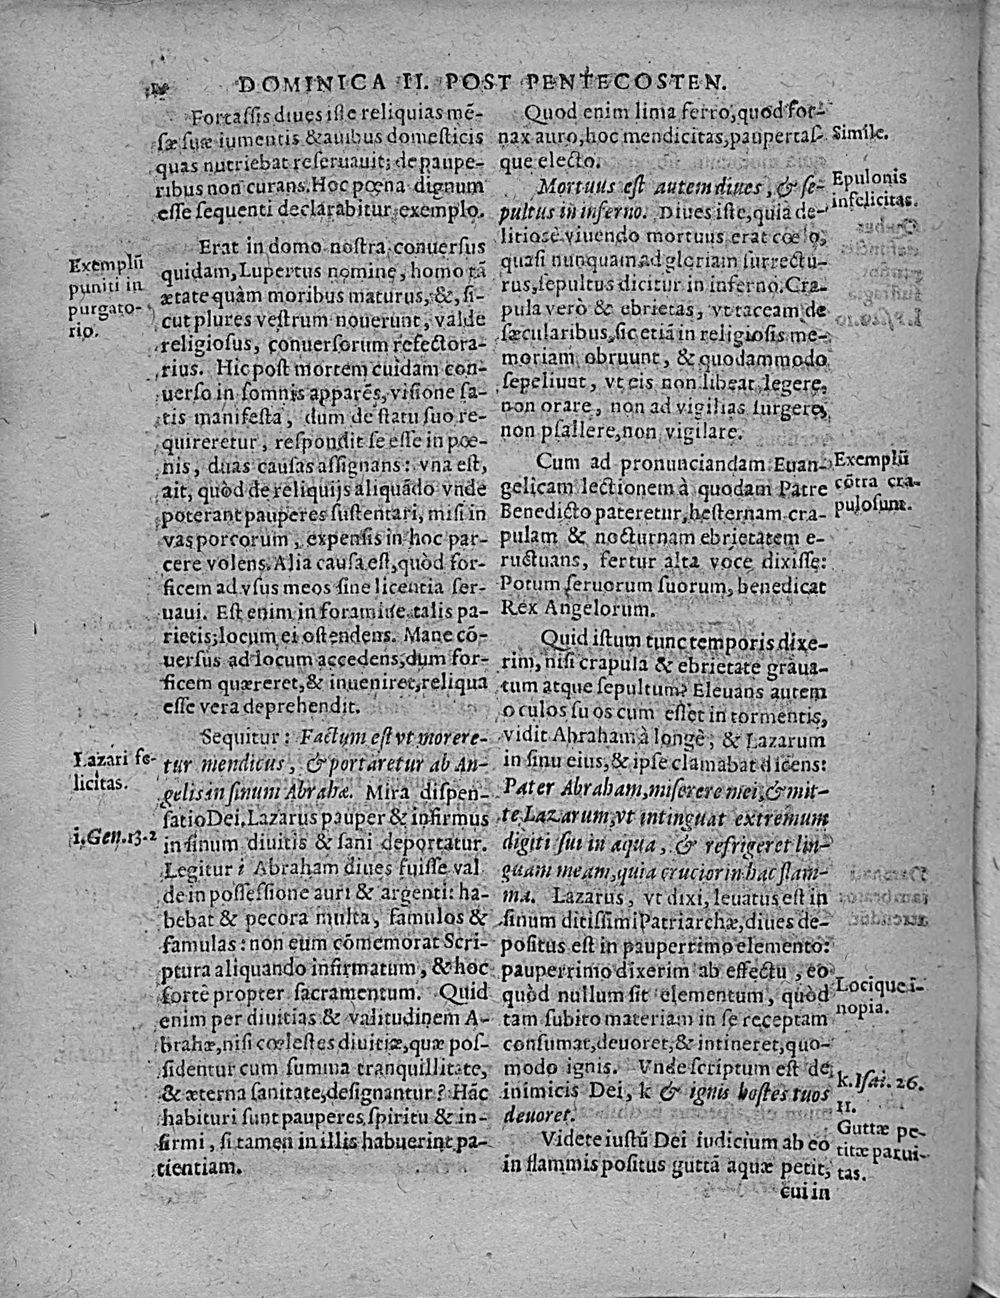 DOMINICA II. POST PENTECOSTEN.
Fortassis diues iste reliquias mẽ-
sæ suæ iumentis & auibus domesticis
quas nutriebat reseruauit; de paupe-
ribus non curans. Hoc pœna dignum
esse sequenti declarabitur exemplo.
Exemplũ
puniti in
purgato-
rio.
Erat in domo nostra conuersus
quidam, Lupertus nomine, homo tã
ætate quàm moribus maturus, &, si-
cut plures vestrum nouerunt, valde
religiosus, conuersorum refectora-
rius. Hic post mortem cuidam con-
uerso in somnis apparẽs, visione sa-
tis manifesta, dum de statu suo re-
quireretur, respondit se esse in pœ-
nis, duas causas assignans: vna est,
ait, quòd de reliquijs aliquãdo vnde
poterant pauperes sustentari, misi in
vas porcorum, expensis in hoc par-
cere volens. Alia causa est, quòd for-
ficem ad vsus meos sine licentia ser-
uaui. Est enim in foramine talis pa-
rietis; locum ei ostendens. Mane cõ-
uersus ad locum accedens, dum for-
ficem quæreret, & inueniret, reliqua
esse vera deprehendit.
Lazari fe-
licitas.
i. Gen. 13. 2
Sequitur: Factum est vt morere-
tur mendicus, & portaretur ab An-
gelis in sinum Abrahæ. Mira dispen-
satio Dei. Lazarus pauper & infirmus
in sinum diuitis & sani deportatur.
Legitur i Abraham diues fuisse val
de in possessione auri & argenti: ha-
bebat & pecora multa, famulos &
famulas: non eum cõmemorat Scri-
ptura aliquando infirmatum, & hoc
fortè propter sacramentum. Quid
enim per diuitias & valitudinem A-
brahæ, nisi cœlestes diuitiæ, quæ pos-
sidentur cum summa tranquillitate,
& æterna sanitate, designantur? Hãc
habituri sunt pauperes spiritu & in-
firmi, si tamen in illis habuerint pa-
tientiam.
Quod enim lima ferro, quod for-
nax auro, hoc mendicitas, paupertas-
que electo.
Simile.
Epulonis
infelicitas.
Mortuus est autem diues, & se-
pultus in inferno. Diues iste, quia de-
litiosè viuendo mortuus erat cœlo,
quasi nunquam ad gloriam surrectu-
rus, sepultus dicitur in inferno. Cra-
pula verò & ebrietas, vt taceam de
sæcularibus, sic etiã in religiosis me-
moriam obruunt, & quodammodo
sepeliunt, vt eis non libeat legere,
non orare, non ad vigilias surgere,
non psallere, non vigilare.
Exemplũ
cõtra cra-
pulosum.
Cum ad pronunciandam Euan-
gelicam lectionem à quodam Patre
Benedicto pateretur, hesternam cra-
pulam & nocturnam ebrietatem e-
ructuans, fertur alta voce dixisse:
Potum seruorum suorum, benedicat
Rex Angelorum.
Quid istum tunc temporis dixe-
rim, nisi crapula & ebrietate graua-
tum atque sepultum? Eleuans autem
oculos suos cum esset in tormentis,
vidit Abraham à longè, & Lazarum
in sinu eius, & ipse clamabat dicens:
Pater Abraham, miserere mei, & mit-
te Lazarum, vt intinguat extremum
digiti sui in aqua, & refrigeret lin-
guam meam, quia crucior in hac flam-
ma. Lazarus, vt dixi, leuatus est in
sinum ditissimi Patriarchæ, diues de-
positus est in pauperrimo elemento:
pauperrimo dixerim ab effectu, eo
quòd nullum sit elementum, quòd
tam subito materiam in se receptam
consumat, deuoret, & intineret, quo-
modo ignis. Vnde scriptum est de
inimicis Dei, k & ignis hostes tuos
deuoret.
Locique i-
nopia.
k. Isai. 26.
11.
Guttæ pe-
titæ parui-
tas.
Videte iustũ Dei iudicium ab eo
in flammis positus guttã aquæ petit,
cui in